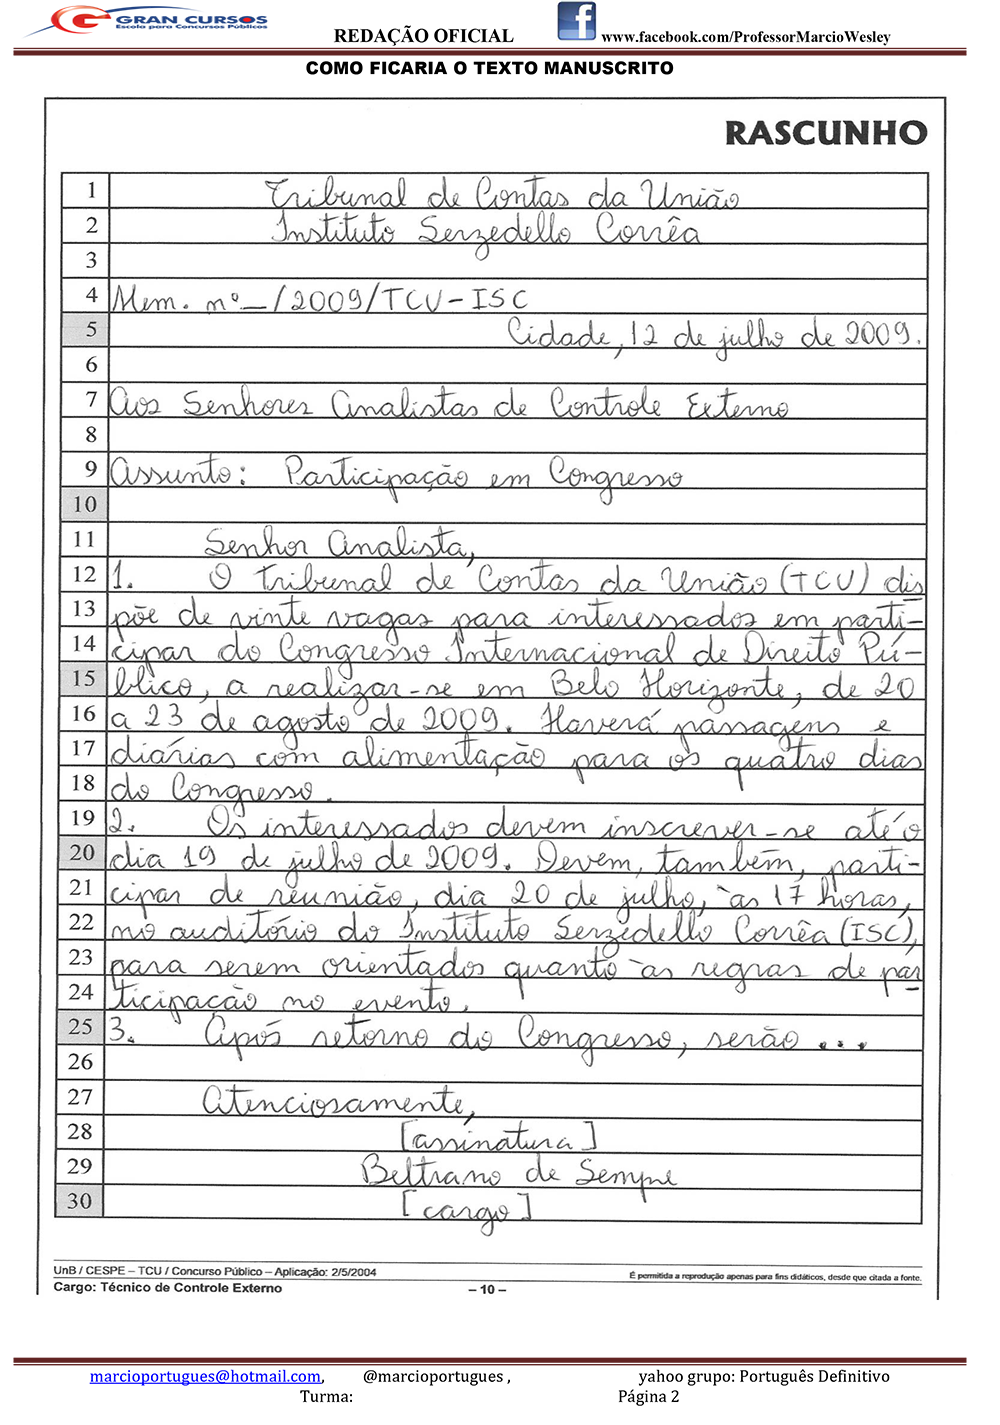 GRAN CURSOS
Escola para Concursos Públicos
REDAÇÃO OFICIAL
www.facebook.com/ProfessorMarcioWesley
COMO FICARIA O TEXTO MANUSCRITO
RASCUNHO
1 Tribunal de Contas da União
2 Instituto Serzedello Corrêa
3
4 Mem. nº_/2009/TCU-ISC
5 Cidade, 12 de julho de 2009.
6
7 Aos Senhores Analistas de Controle Externo
8
9 Assunto: Participação em Congresso
10
11 Senhor Analista,
12 1. O Tribunal de Contas da União (TCU) dis
13 põe de vinte vagas para interessados em parti-
14 cipar do Congresso Internacional de Direito Pú-
15 blico, a realizar-se em Belo Horizonte, de 20
16 a 23 de agosto de 2009. Haverá passagens e
17 diárias com alimentação para os quatro dias
18 do Congresso.
19 2. Os interessados devem inscrever-se até o
20 dia 19 de julho de 2009. Devem, também, parti-
21 cipar de reunião, dia 20 de julho, às 17 horas,
22 no auditório do Instituto Serzedello Corrêa (ISC),
23 para serem orientados quanto às regras de par
24 ticipação no evento.
25 3. Após retorno do Congresso, serão ...
26
27 Atenciosamente,
28 [assinatura]
29 Beltrano de Sempe
30 [cargo]
UnB / CESPE – TCU / Concurso Público – Aplicação: 2/5/2004
É permitida a reprodução apenas para fins didáticos, desde que citada a fonte.
Cargo: Técnico de Controle Externo
– 10 –
marcioportugues@hotmail.com, @marcioportugues , yahoo grupo: Português Definitivo
Turma: Página 2